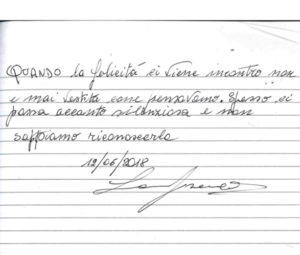 QUANDO la felicità ci viene incontro non
è mai vestita come pensavamo. Spesso ci
passa accanto silenziosa e non
sappiamo riconoscerla
12/06/2018